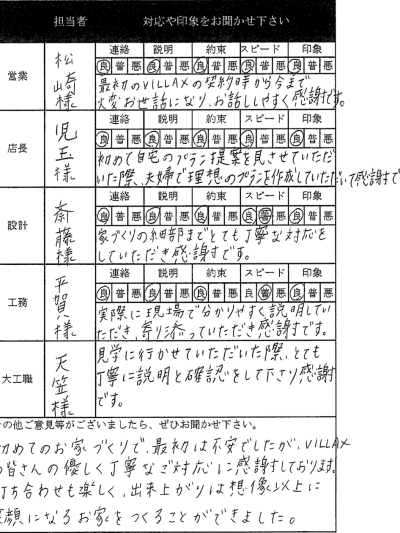 担当者 対応や印象をお聞かせ下さい
営業 松崎様 連絡 説明 約束 スピード 印象
良 普 悪 良 普 悪 良 普 悪 良 普 悪 良 普 悪
最初のVILLAXの契約時から今まで
大変お世話になり、お話ししやすく感謝です。
店長 児玉様 連絡 説明 約束 スピード 印象
良 普 悪 良 普 悪 良 普 悪 良 普 悪 良 普 悪
初めて自宅のプラン提案を見させていただ
いた際、夫婦で理想のプランを作成していただいて感謝で
設計 斎藤様 連絡 説明 約束 スピード 印象
良 普 悪 良 普 悪 良 普 悪 良 普 悪 良 普 悪
家づくりの細部までとても丁寧な対応を
していただき感謝です。
工務 平賀様 連絡 説明 約束 スピード 印象
良 普 悪 良 普 悪 良 普 悪 良 普 悪 良 普 悪
実際に現場で分かりやすく説明してい
ただき、寄り添っていただき感謝です。
大工職 天笠様 見学に行かせていただいた際、とても
丁寧に説明と確認をして下さり感謝
です。
の他ご意見等がございましたら、ぜひお聞かせ下さい。
初めてのお家づくりで、最初は不安でしたが、VILLAX
の皆さんの優しく丁寧なご対応に感謝しております。
打ち合わせも楽しく、出来上がりは想像以上に
笑顔になるお家をつくることができました。